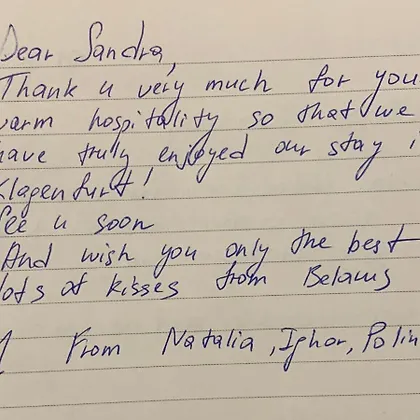 Dear Sandra,
Thank u very much for you
warm hospitality so that we
have truly enjoyed our stay i
Klagenfurt!
See u soon
And wish you only the best
lots of kisses from Belarus
From Natalia, Ighor, Polin